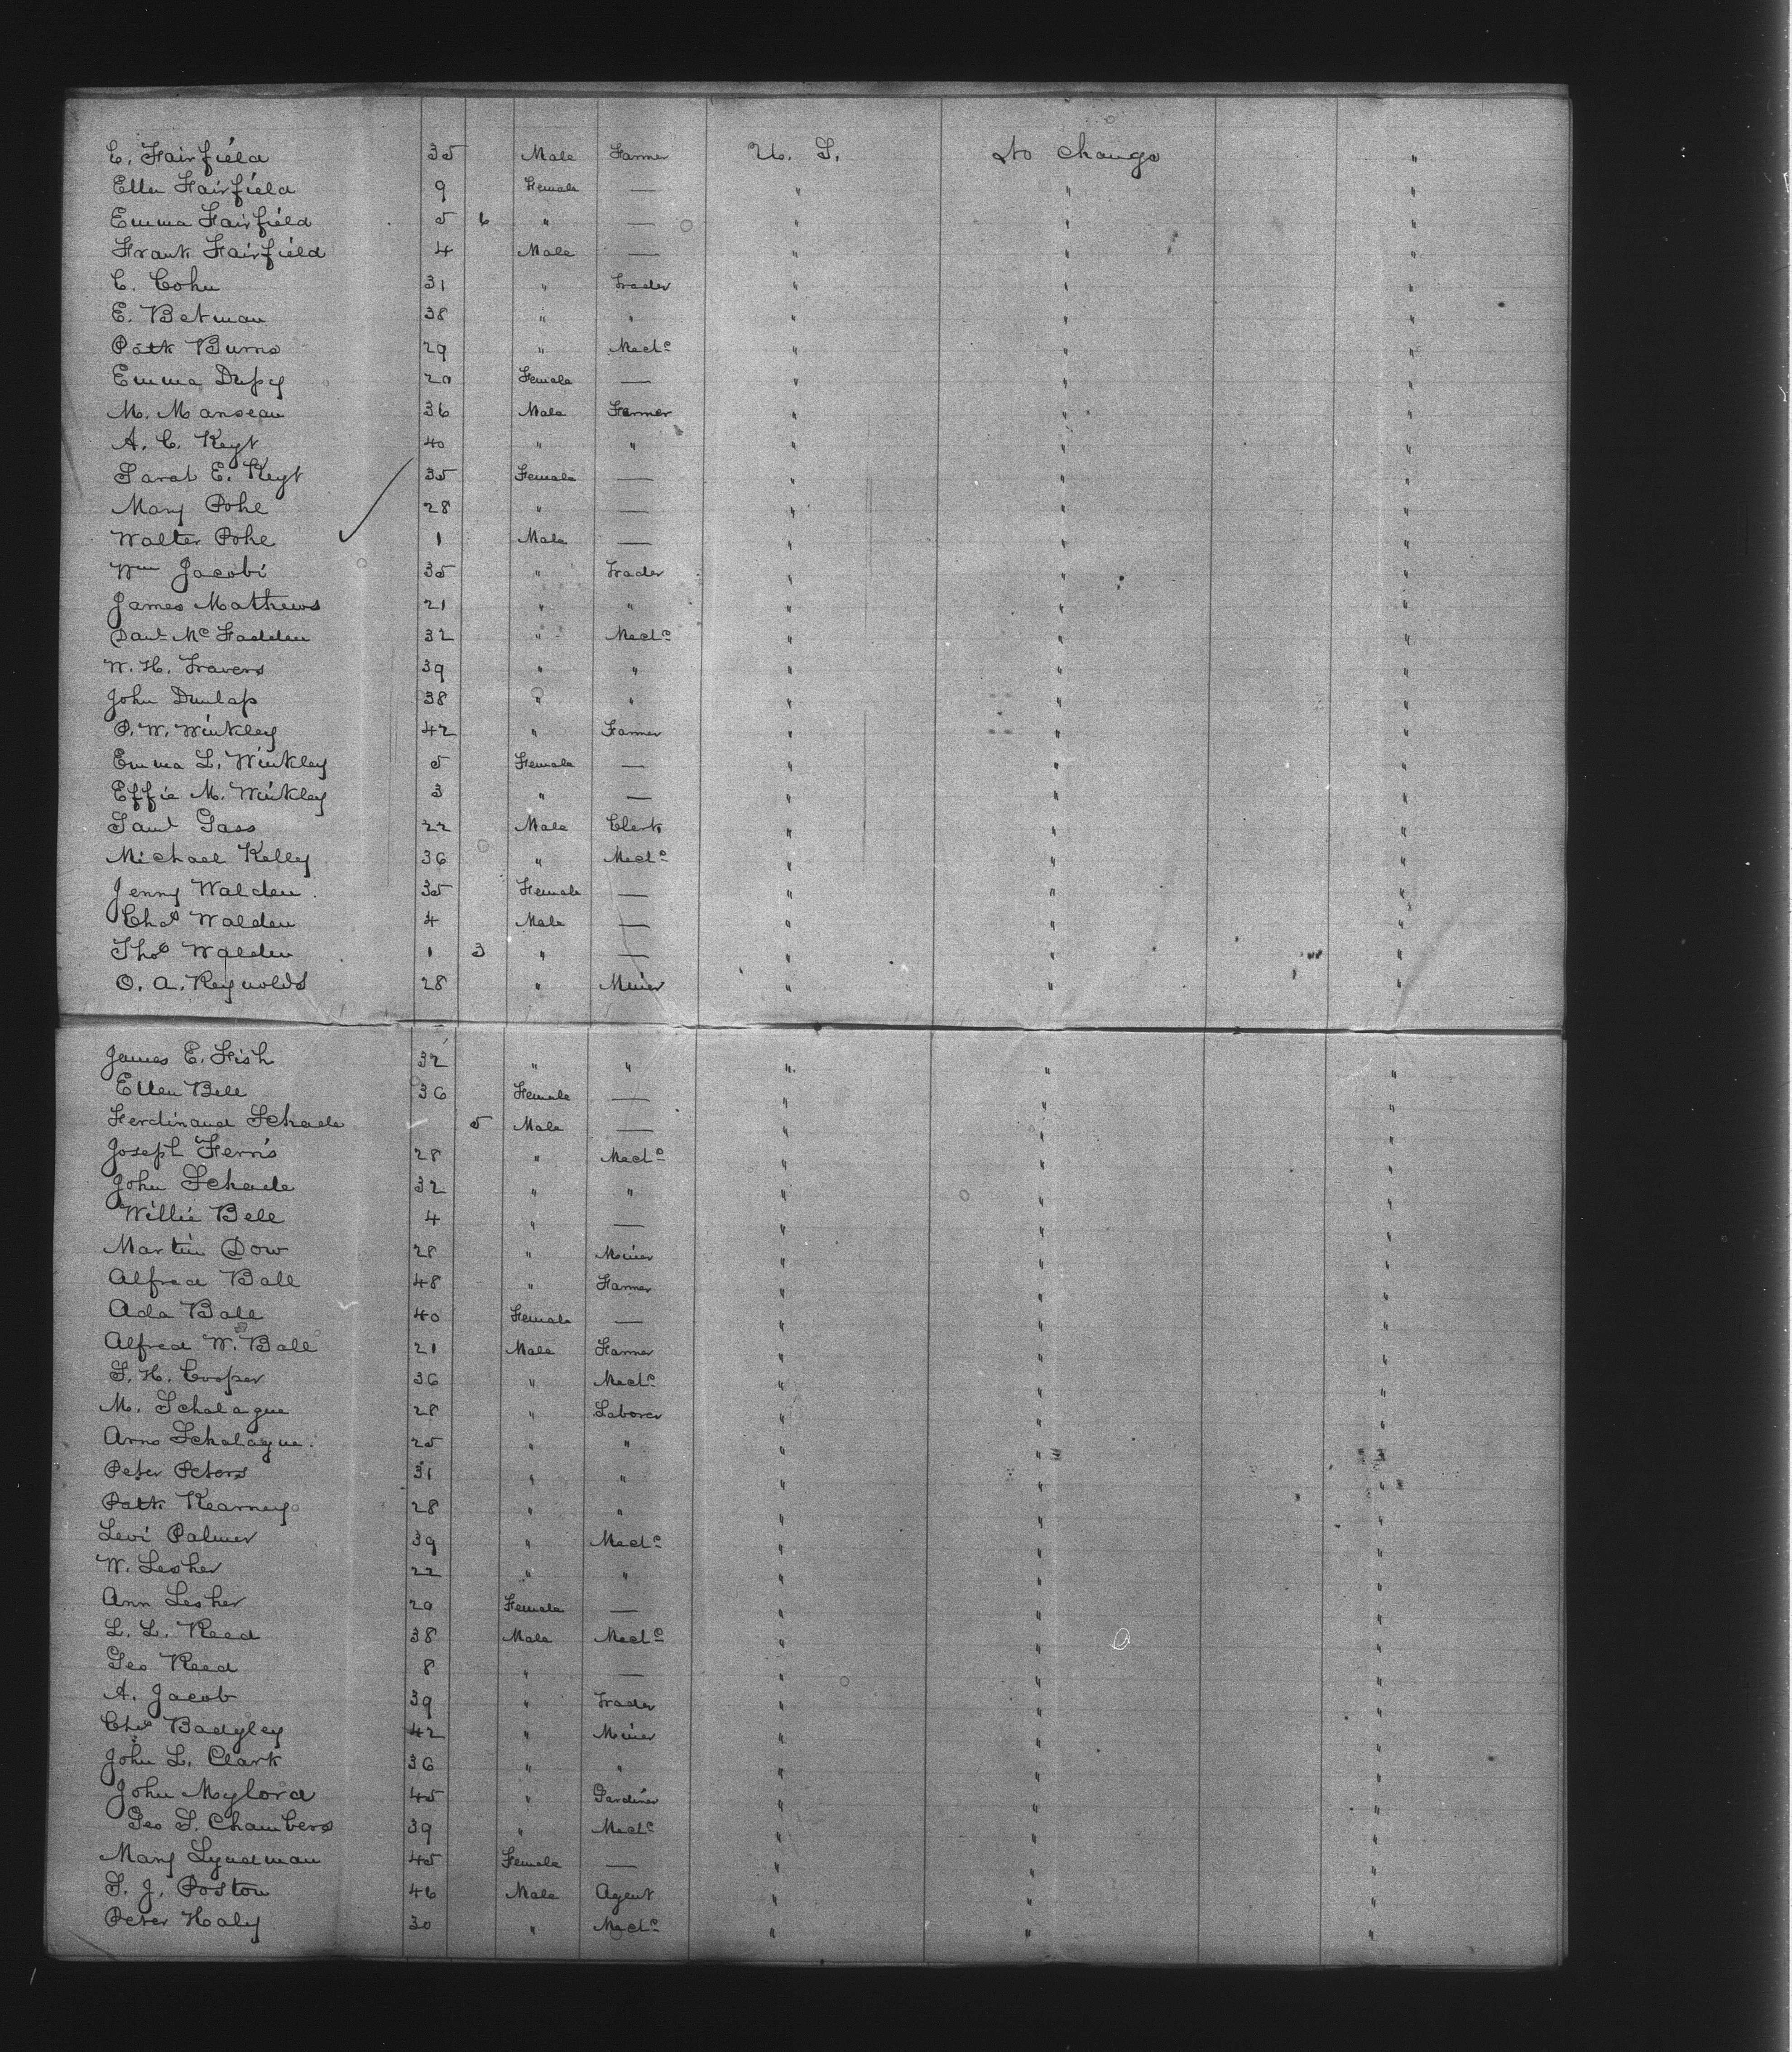 C. Fairfield 35 Male Farmer U. S. No change "
Ellen Fairfield 9 Female — " " "
Emma Fairfield 5 6 " — " " "
Frank Fairfield 4 Male — " " "
C. Cohn 31 " Trader " " "
E. Betman 38 " " " " "
Patk Burns 29 " Mechc " " "
Emma Dupy 20 Female — " " "
M. Manseau 36 Male Farmer " " "
A. C. Keyt 40 " " " " "
Sarah E. Keyt 35 Female — " " "
Mary Pohe 28 " — " " "
Walter Pohe 1 Male — " " "
Wm Jacobi 35 " Trader " " "
James Mathews 21 " " " " "
Danl McFadden 32 " Mechc " " "
W. H. Travers 39 " " " " "
John Dunlap 38 " " " " "
P. W. Winkley 42 " Farmer " " "
Emma L. Winkley 5 Female — " " "
Effie M. Winkley 3 " — " " "
Saml Sass 22 Male Clerk " " "
Michael Kelly 36 " Mechc " " "
Jenny Walden 35 Female — " " "
Chas Walden 4 Male — " " "
Thos Walden 1 3 " — " " "
O. A. Reynolds 28 " Miner " " "
James E. Fish 32 " " " " "
Ellen Bell 36 Female — " " "
Ferdinand Schade 5 Male — " " "
Joseph Ferris 28 " Mechc " " "
John Schade 32 " " " " "
Willie Bell 4 " — " " "
Martin Dow 28 " Miner " " "
Alfred Ball 48 " Farmer " " "
Ada Ball 40 Female — " " "
Alfred W. Ball 21 Male Farmer " " "
S. H. Cooper 36 " Mechc " " "
M. Schalague 28 " Laborer " " "
Arno Schalague 25 " " " " "
Peter Peters 31 " " " " "
Patk Kearney 28 " " " " "
Levi Palmer 39 " Mechc " " "
W. Lesher 22 " " " " "
Ann Lesher 20 Female — " " "
L. L. Reed 38 Male Mechc " " "
Geo Reed 8 " — " " "
A. Jacob 39 " Trader " " "
Chas Badgley 42 " Miner " " "
John L. Clark 36 " " " " "
John Mylord 45 " Gardiner " " "
Geo S. Chambers 39 " Mechc " " "
Mary Lyndman 45 Female — " " "
S. J. Poston 46 Male Agent " " "
Peter Haly 30 " Mechc " " "